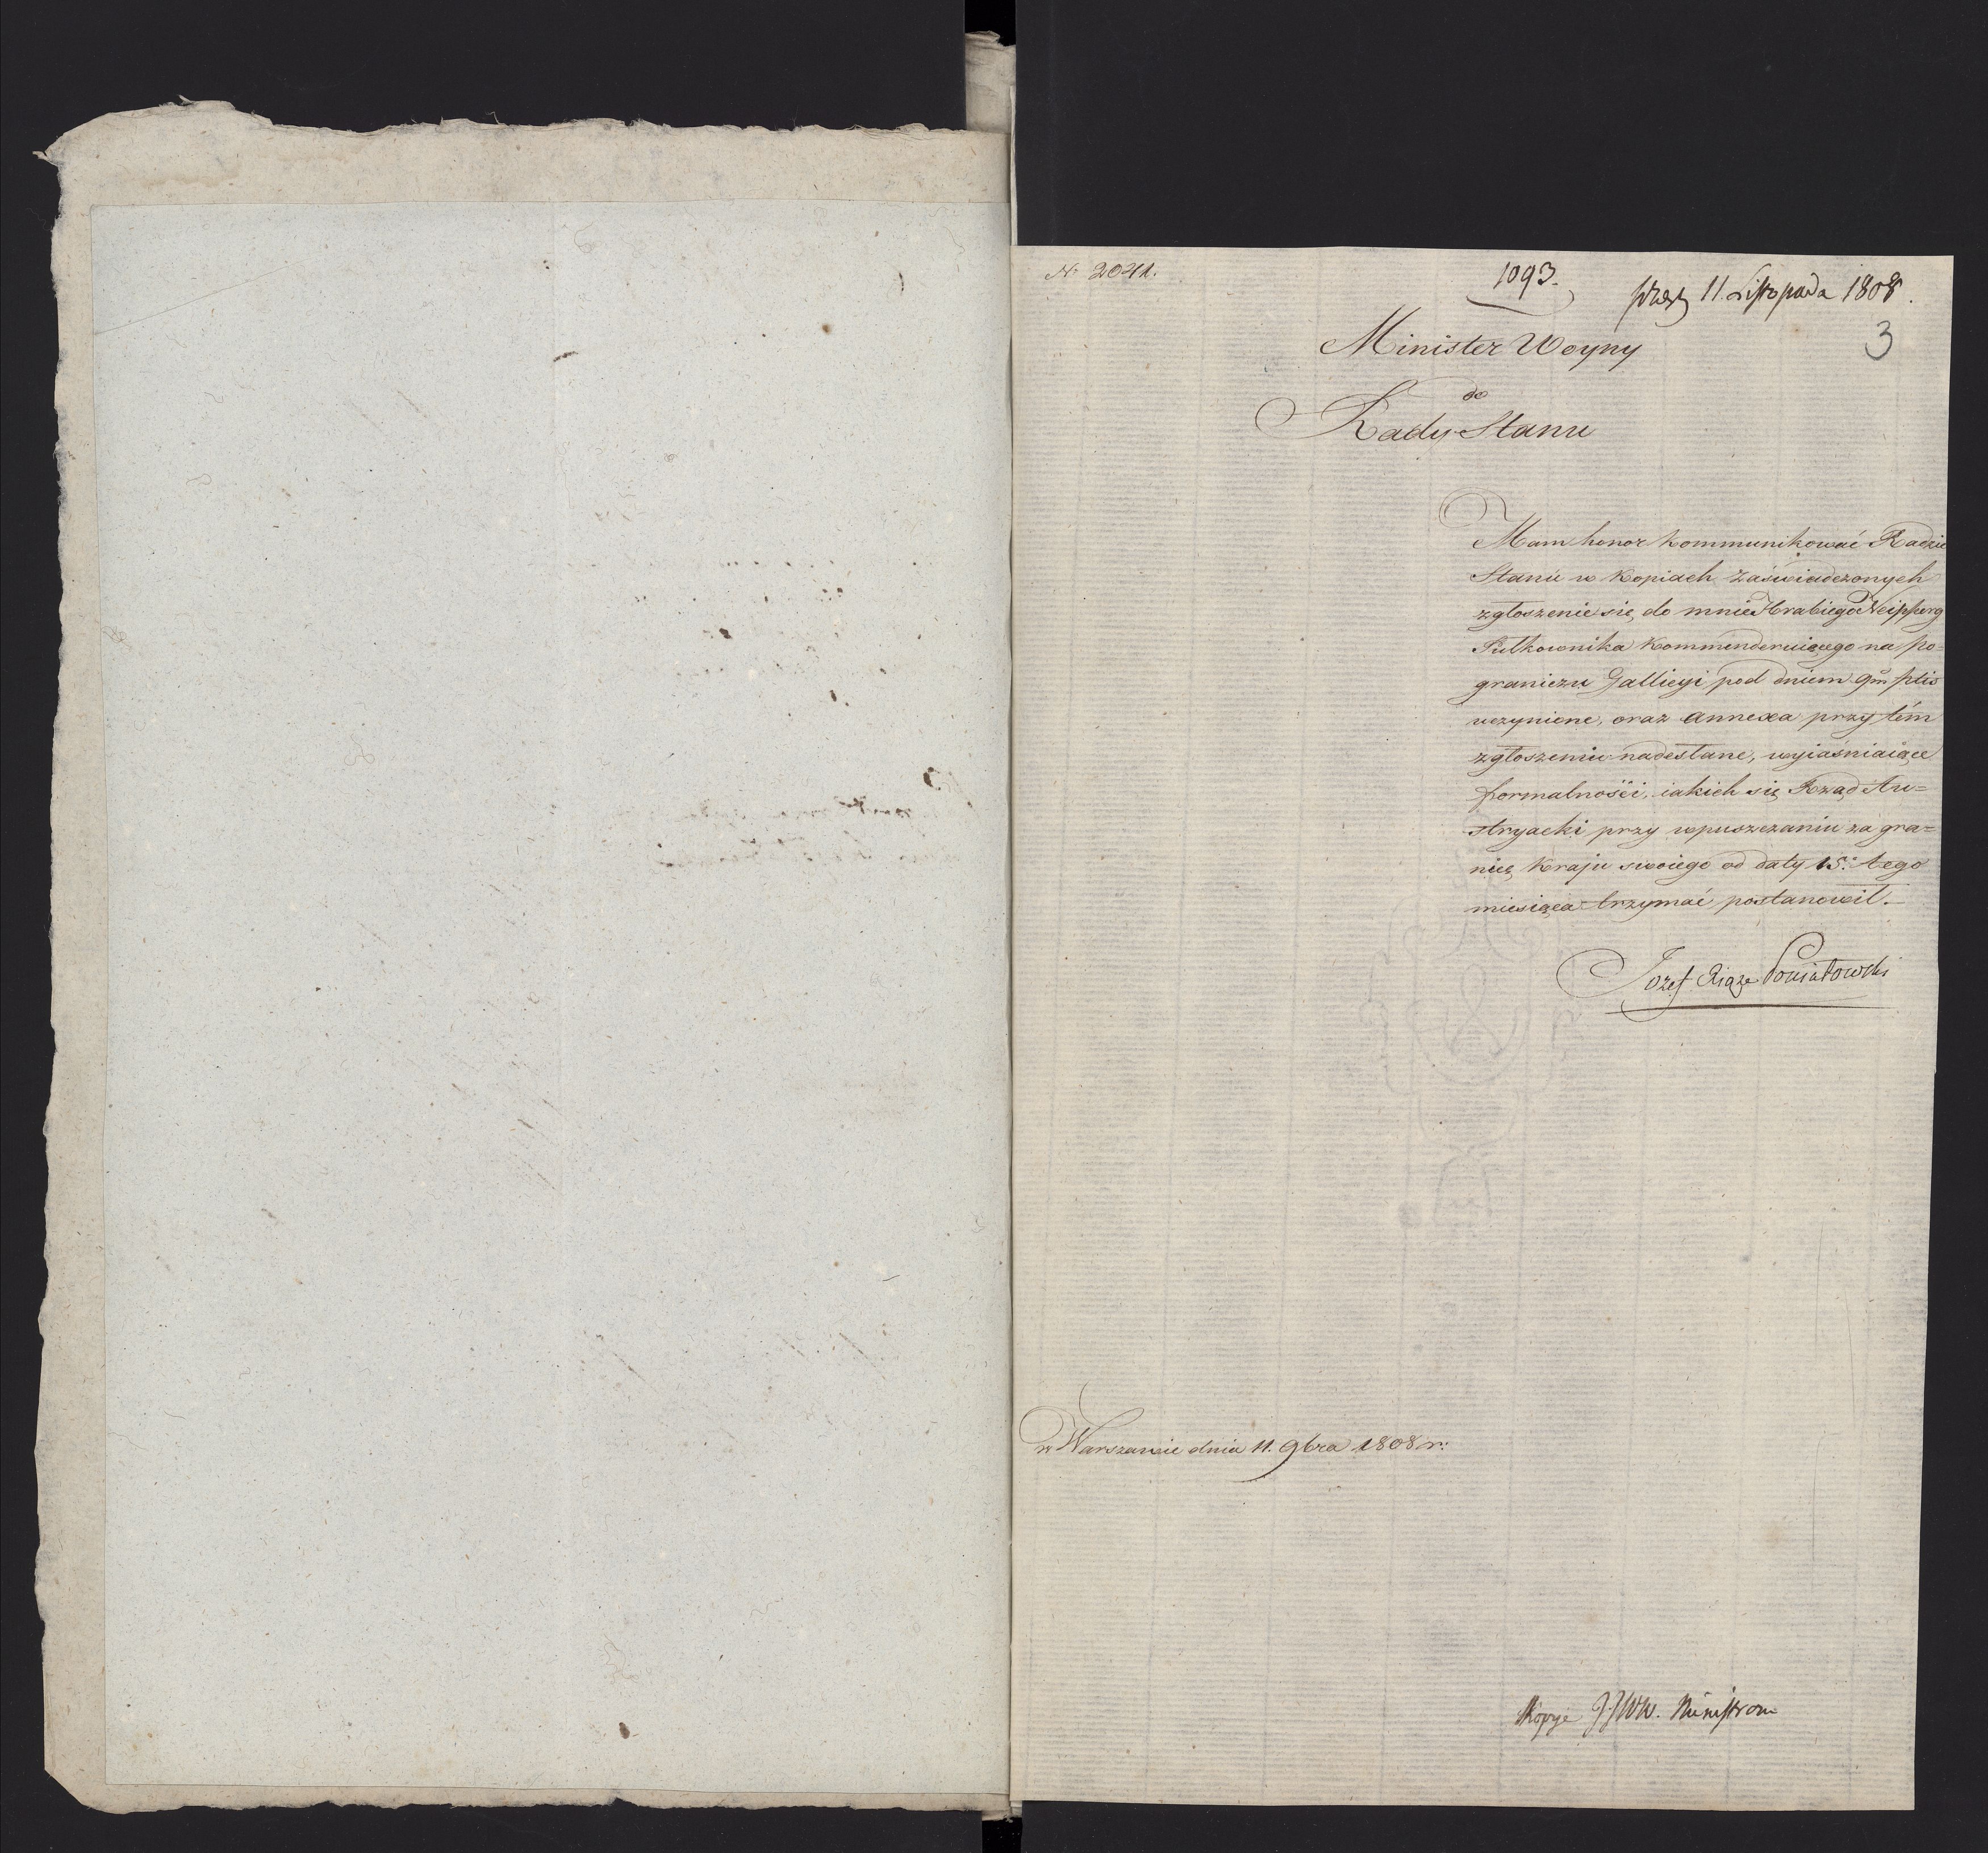 N. 2041.
1093.
11. Listopada 1808.
3
Minister Woyny
do
Rady Stanu
Mam honor kommunikować Radzie
Stanu w kopiach zaświadczonych
zgłoszenie się do mnie Hrabiego Neipperg
Pułkownika kommenderuiącego na po-
graniczu Gallicyi pod dniem 9m ptis
uczynione, oraz annexa przy tém
zgłoszeniu nadesłane, wyiaśniaiące
formalności, iakich się Rząd Au=
stryacki przy wpuszczaniu za gra=
nicę kraju swoiego od daty 15. tego
miesiąca trzymać postanowił.
Jozef Xiąże Poniatowski
w Warszawie dnia 11. 9bra 1808 r:
Kopye JJWW. Ministrom